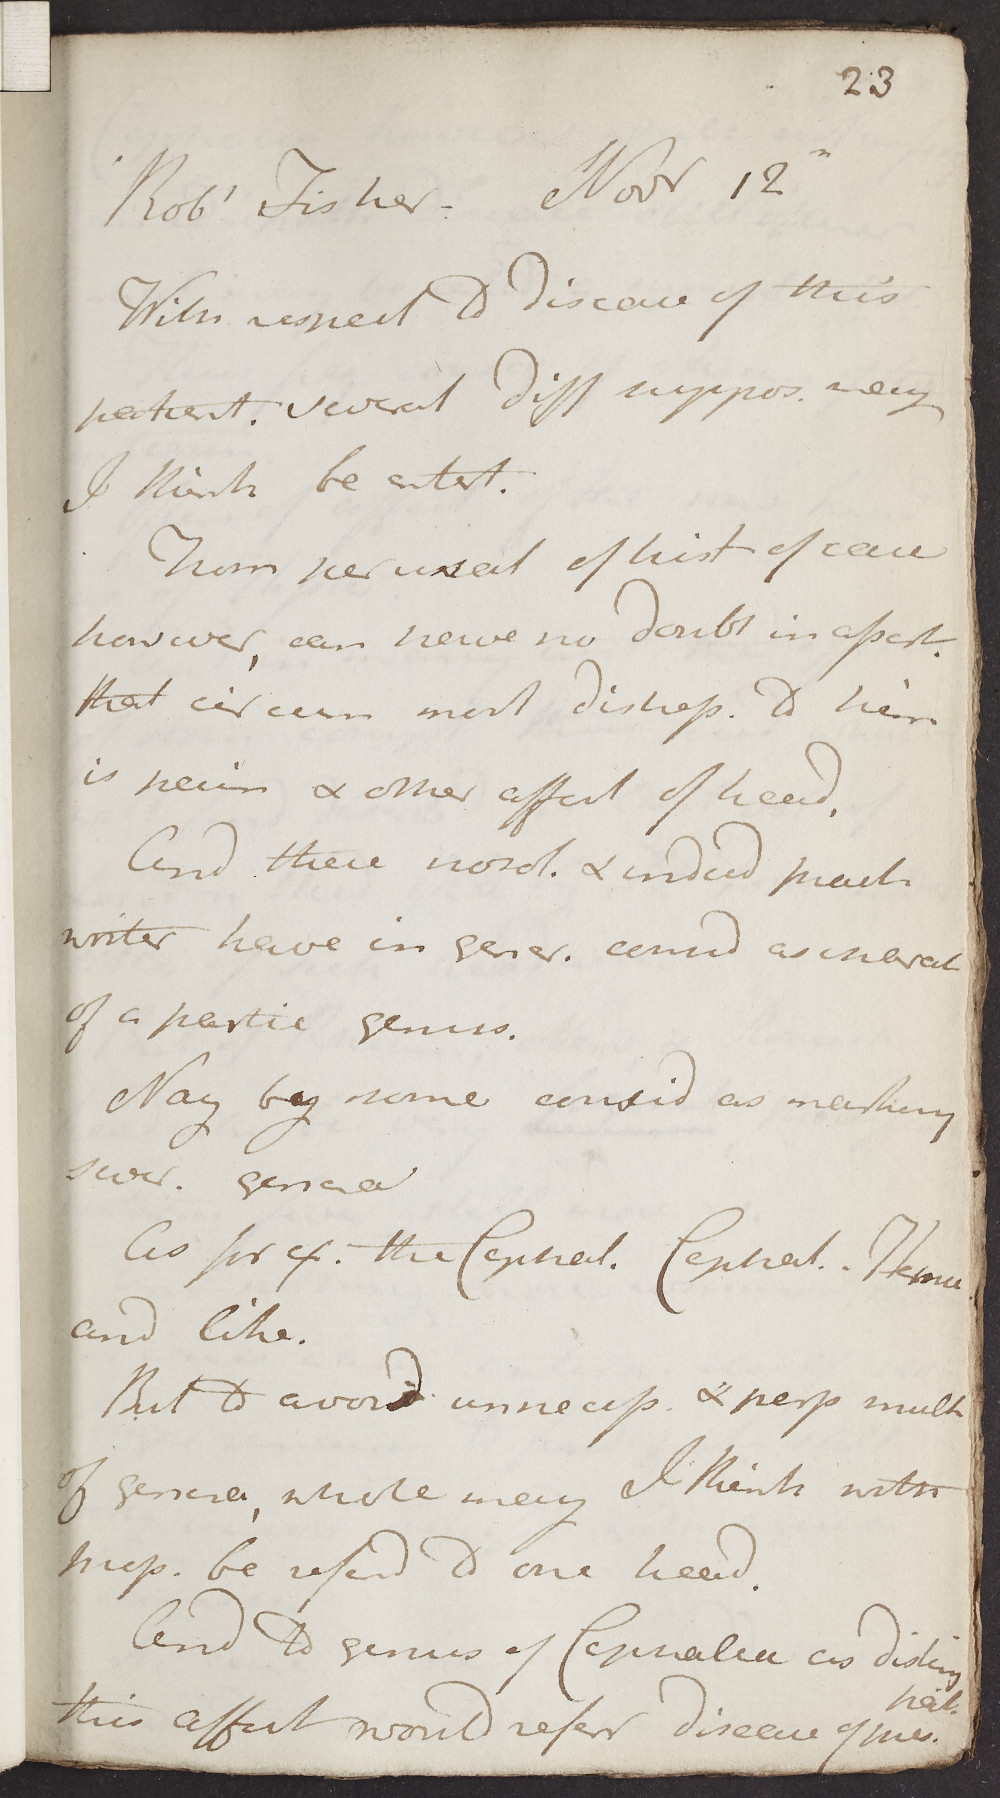 23
Robt Fisher - Novr 12th
With respect to disease of this
patient. several diff suppos. may
I think be entert.
From perusal of hist of case
however, can have no doubt in assert.
that circum most distress. to him
is pain & other affect of head.
And these nosol. & indeed pract
writer have in gener. consid as several
of a partic genus.
Nay by some consid as making
sever. genera
As for ex. the Cephal. Cephal.
and like.
But to avoid unnecess. & perp mult
of genera, whole may I think with
prop. be referd to one head.
And to genus of Cephalea as disting
this affect would refer disease of pres. pat.